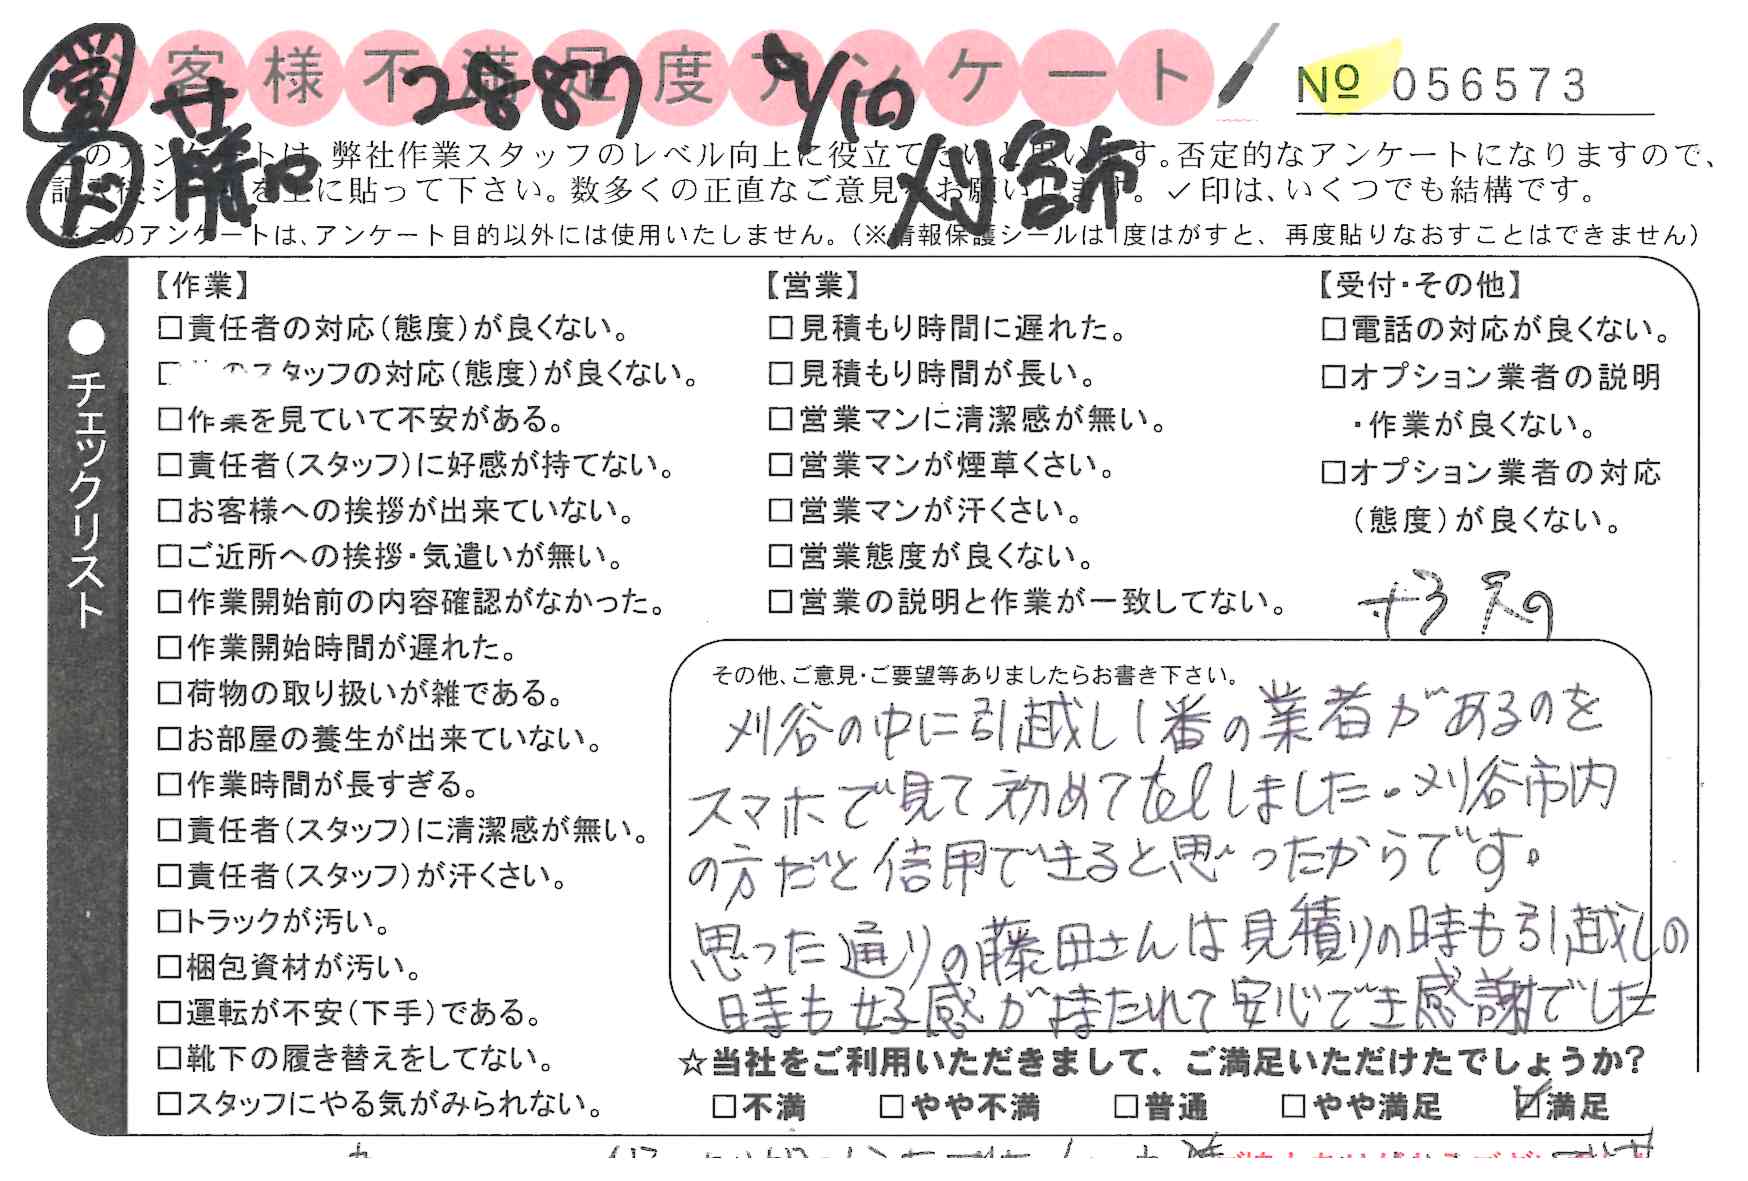 お客様不満足度アンケート
No 056573
営 井 2887 9/10
刈谷市
このアンケートは、弊社作業スタッフのレベル向上に役立てたいと思います。否定的なアンケートになりますので、
記入後シールを上に貼って下さい。数多くの正直なご意見をお願いします。✓印は、いくつでも結構です。
※このアンケートは、アンケート目的以外には使用いたしません。(※情報保護シールは1度はがすと、再度貼りなおすことはできません)
●チェックリスト
【作業】
□責任者の対応(態度)が良くない。
のスタッフの対応(態度)が良くない。
□作業を見ていて不安がある。
□責任者(スタッフ)に好感が持てない。
□お客様への挨拶が出来ていない。
□ご近所への挨拶・気遣いが無い。
□作業開始前の内容確認がなかった。
□作業開始時間が遅れた。
□荷物の取り扱いが雑である。
□お部屋の養生が出来ていない。
□作業時間が長すぎる。
□責任者(スタッフ)に清潔感が無い。
□責任者(スタッフ)が汗くさい。
□トラックが汚い。
□梱包資材が汚い。
□運転が不安(下手)である。
□靴下の履き替えをしてない。
□スタッフにやる気がみられない。
【営業】
□見積もり時間に遅れた。
□見積もり時間が長い。
□営業マンに清潔感が無い。
□営業マンが煙草くさい。
□営業マンが汗くさい。
□営業態度が良くない。
□営業の説明と作業が一致してない。
【受付・その他】
□電話の対応が良くない。
□オプション業者の説明
・作業が良くない。
□オプション業者の対応
(態度)が良くない。
その他、ご意見・ご要望等ありましたらお書き下さい。
刈谷の中に引越し1番の業者があるのを
スマホで見て初めてtelしました。刈谷市内
の方だと信用できると思ったからです。
思った通りの藤田さんは見積りの時も引越しの
時も好感がもたれて安心でき感謝でした
☆当社をご利用いただきまして、ご満足いただけたでしょうか?
□不満 □やや不満 □普通 □やや満足 ☑満足